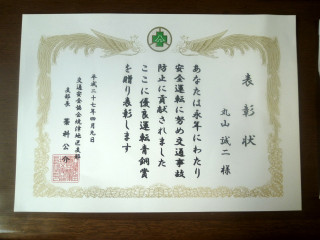 表彰状
丸山誠二様
あなたは永年にわたり
安全運転に努め交通事故
防止に貢献されました
ここに優良運転青銅賞
を贈り表彰します
平成二十七年四月九日
交通安全協会焼津地区支部
支部長 蓄科公介